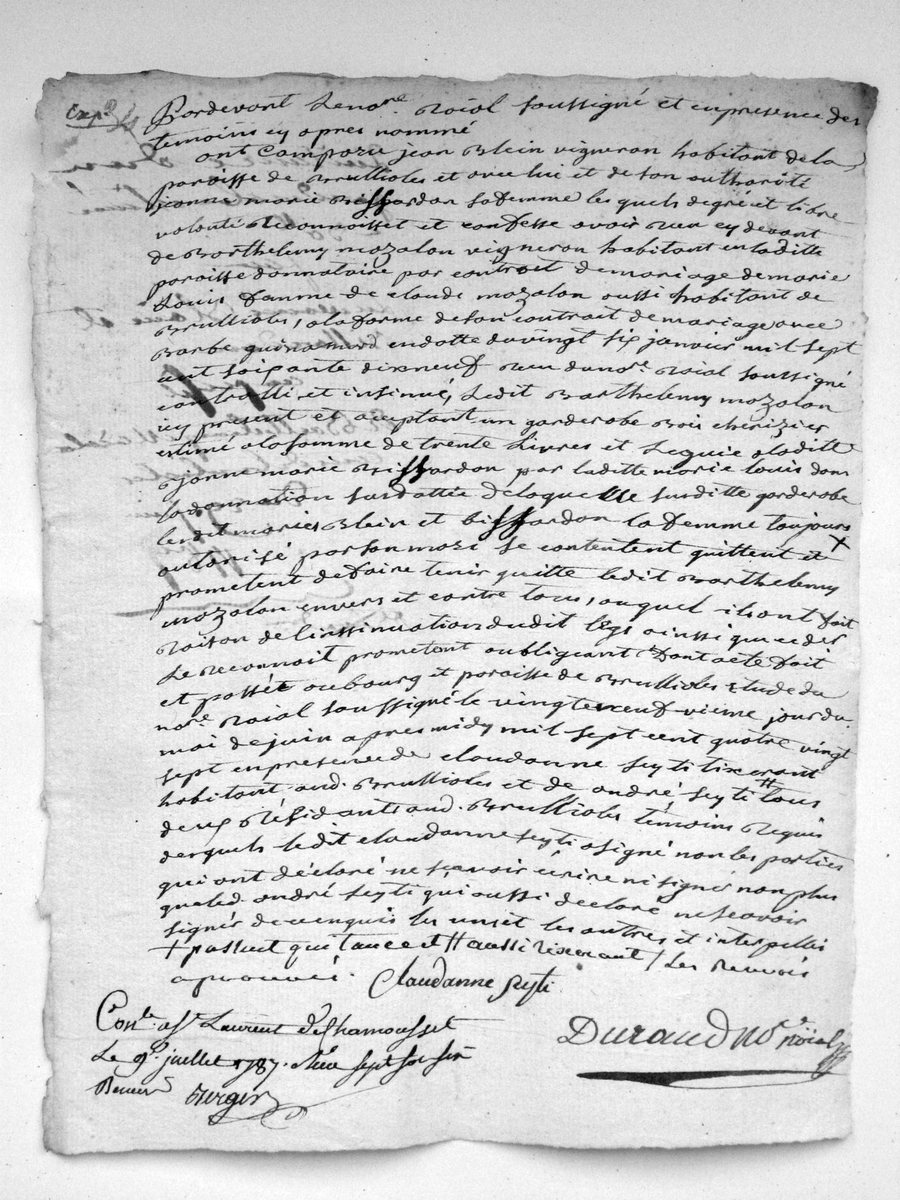 Exp.
Pardevant Le no.re Roial soussigné et en presence des
temoins cy apres nommé
ont comparu jean Blein vigneron habitant de la
paroisse de Brullioles et avec lui et de son authorité
jeanne marie Bissardon sa femme les quels de gré et libre
volonté Reconnoisset et confesse avoir Reçu cy devant
de Barthelemy mazalon vigneron habitant en laditte
paroisse donnataire par contrait de mariage de marie
Louis famme de claude mazalon aussi habitant de
Brullioles, a la forme de son contrait de mariage avec
Barbe guinamard en datte du vingt six janvier mil sept
cent soixante dix neuf Reçu du no.re Roial soussigné
controllé et insinué, Ledit Barthelemy mazalon
cy present et aceptant un garderobe Bois cherizier
estimé a la somme de trente Livres et Leguié a laditte
jeanne marie Bissardon par laditte marie Louis dans
la donnation susdattée de laquelle susditte garderobe
lesdit mariés Blein et bissardon sa femme toujours
autorisé par son mari se contentent quittent et +
prometent de faire tenir quitte ledit Barthelemy
mazalon envers et contre tous, auquel ils ont fait
Raison de l'inssinuation dudit legs ainssi que ce der
Le Reconnoit prometent oubligeant Dont acte fait
et passée au bourg et paroisse de Brullioles Etude du
no.re Roial soussigné le vingt neuf vieme jour du
mai de juin apres midy mil sept cent quatre vingt
sept en presence de claudanne seyti tixerant
habitant aud. Brullioles et de andré seyti # tous
deux Résidants aud. Brullioles témoins Requis
desquels ledit claudanne seyti a signé non les parties
qui ont déclaré ne sçavoir écrire ni signer non plus
que led. andré seyti qui aussi declaré ne scavoir
signer de ce enquis les uns et les autres et interpellés
+ passent quittance et # aussi tixerant / Les Renvois
aprouvé.
Claudanne Seyti
Durand no.re roial
Con.lé a S.t Laurent de Chamousset
Le 9.e juillet 1787. Reçu sept sols six
Deniers
Berger